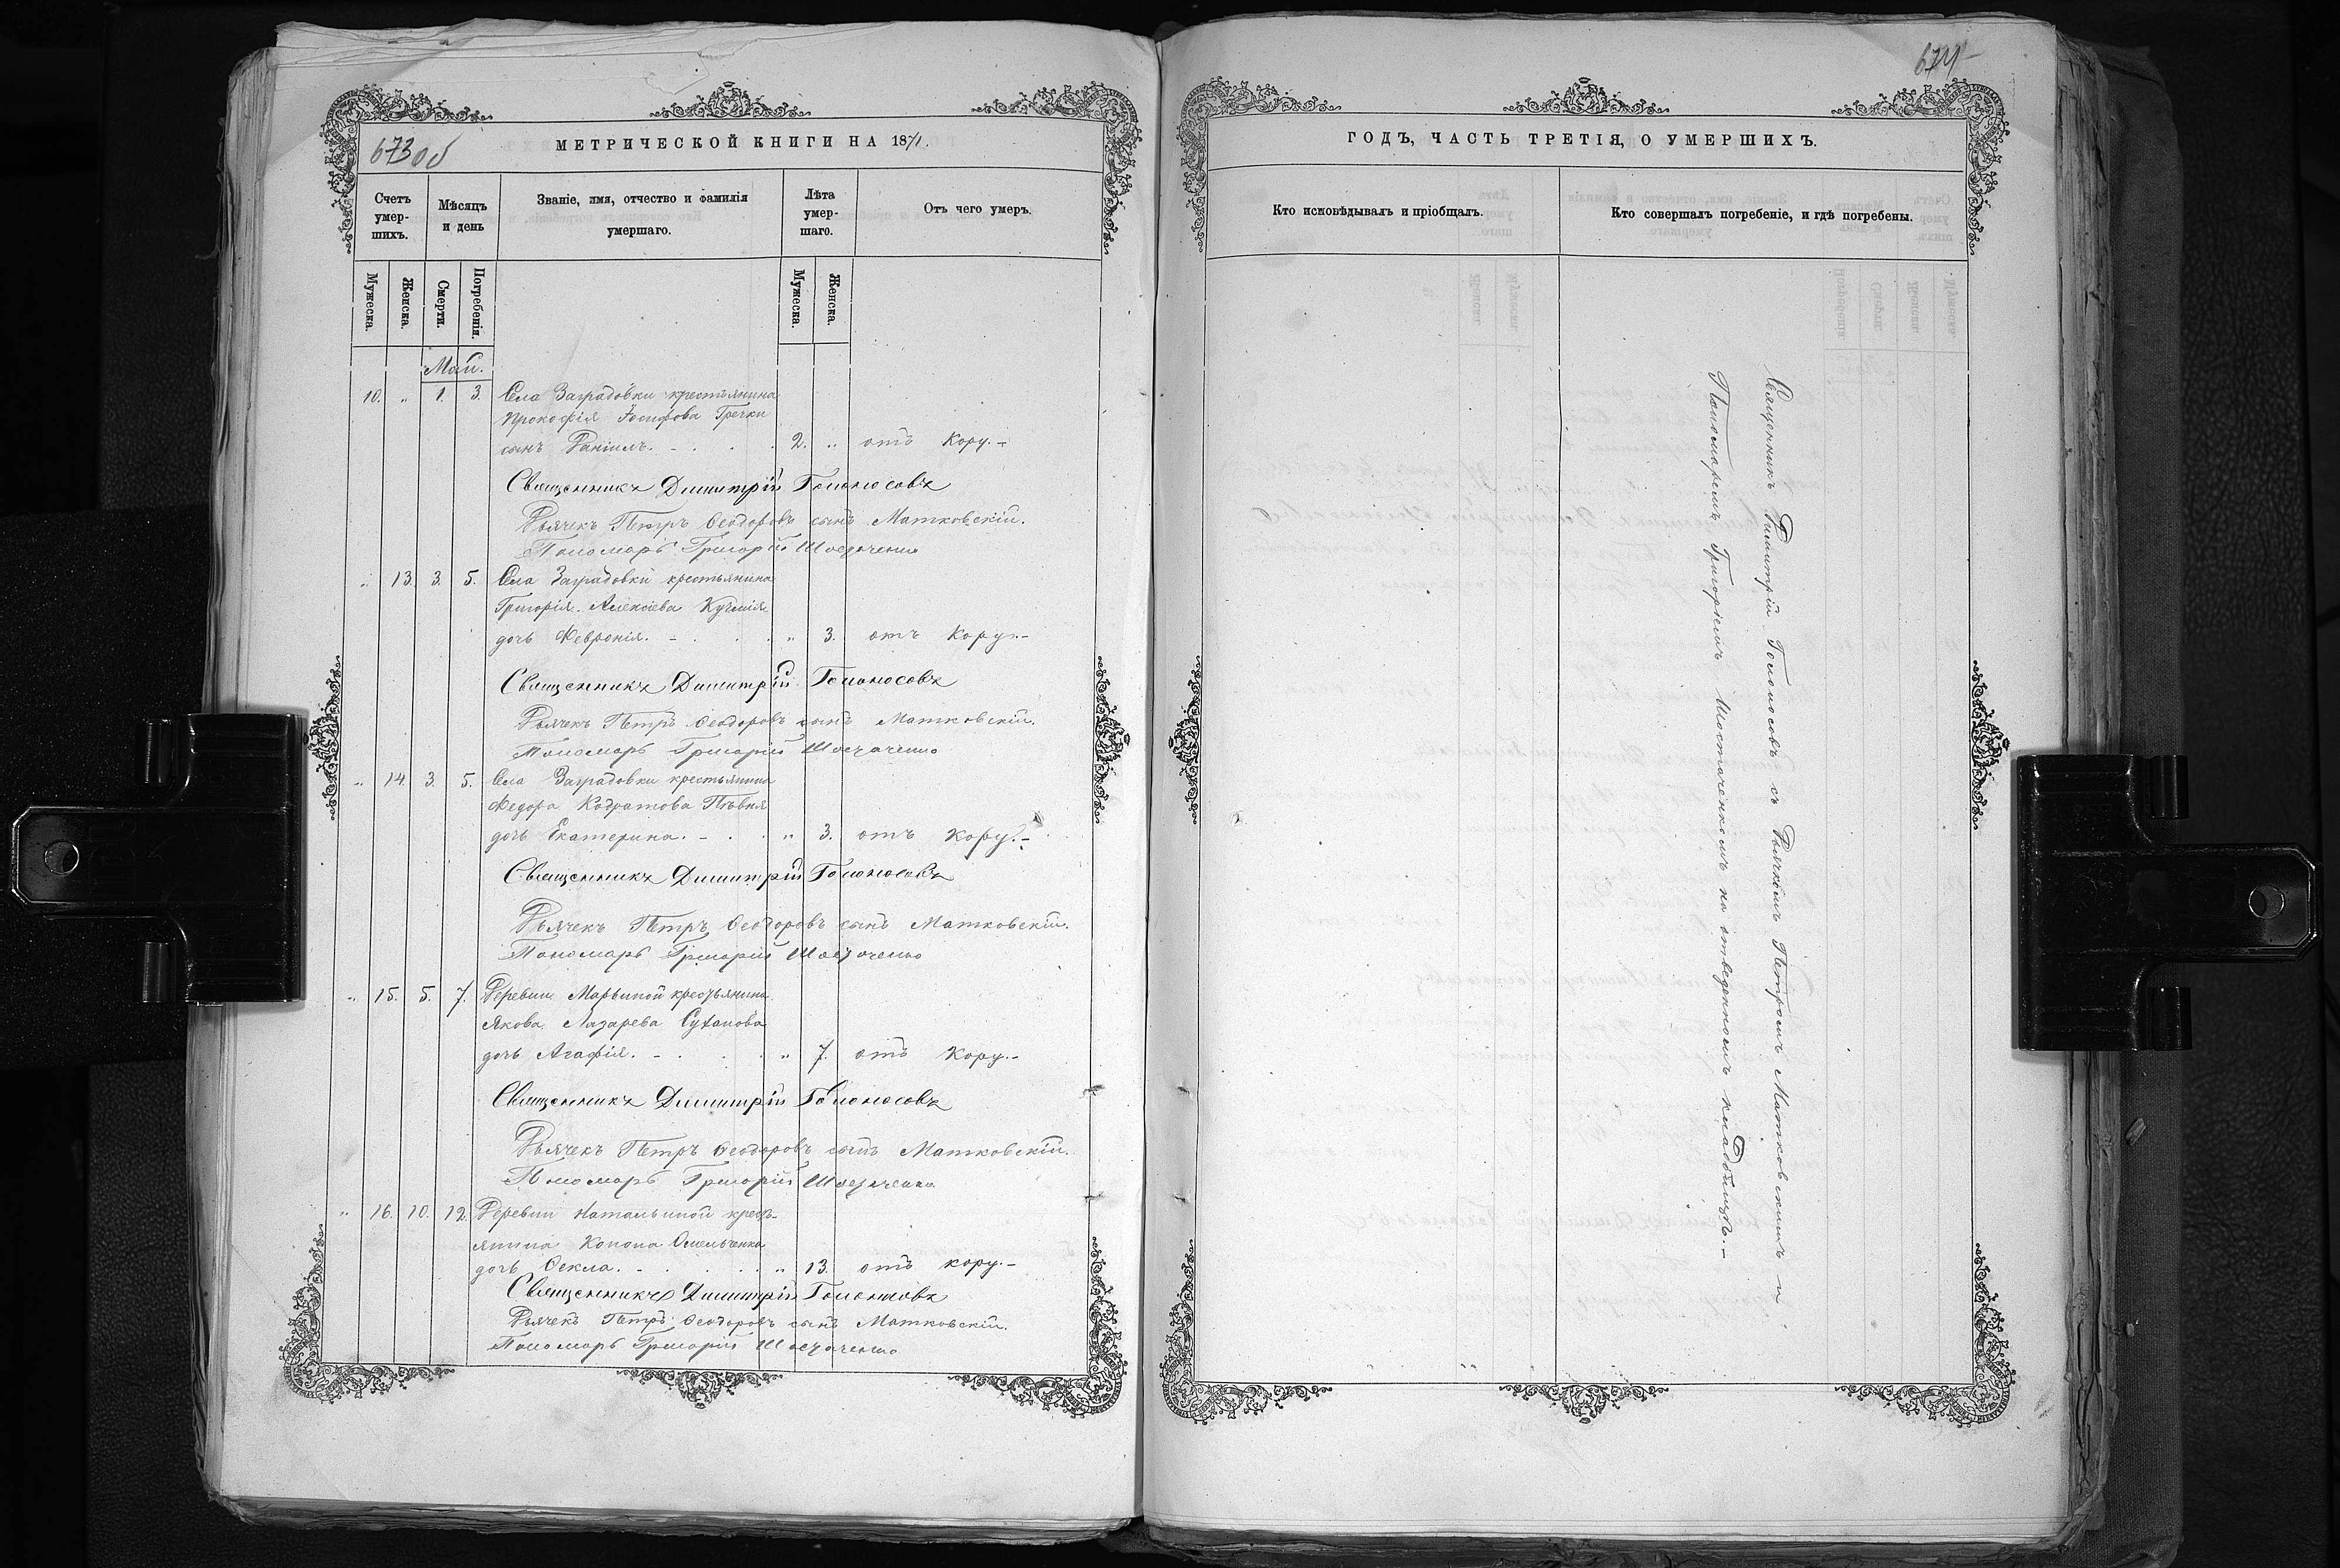 673об
МЕТРИЧЕСКОЙ КНИГИ НА 1871.
Счетъ умер-шихъ.
Мѣсяцъ и день
Званіе, имя, отчество и фамилія умершаго.
Лѣта умер-шаго.
Отъ чего умеръ.
Мужеска.
Женска.
Смерти.
Погребенія.
Мужеска.
Женска.
Май.
10. „ 1. 3. Села Заградовки крестьянина
Прокофія Іосифова Гречки
сынъ Даніилъ. 2. „ отъ Кору.-
Священникъ Димитрій Голоносовъ
Дьячекъ Петръ Ѳеодоровъ сынъ Матковскій.
Пономарь Григорій Шостаченко
„ 13. 3. 5. Села Заградовки крестьянина
Григорія Алексіева
дочь Февронія. „ 3. отъ Кору.-
Священникъ Димитрій Голоносовъ
Дьячекъ Петръ Ѳеодоровъ сынъ Матковскій.
Пономарь Григорій Шостаченко
„ 14. 3. 5. Села Заградовки крестьянина
Федора Кодратова
дочь Екатерина. „ 3. отъ Кору.-
Священникъ Димитрій Голоносовъ
Дьячекъ Петръ Ѳеодоровъ сынъ Матковскій.
Пономарь Григорій Шостаченко
„ 15. 5. 7. Деревни Марьиной крестьянина
Якова Лазарева Суханова
дочь Агафія. „ 7. отъ Кору.-
Священникъ Димитрій Голоносовъ
Дьячекъ Петръ Ѳеодоровъ сынъ Матковскій.
Пономарь Григорій Шостаченко
„ 16. 10. 12. Деревни Натальиной крест-
янина Конона Омельченка
дочь Ѳекла. „ 13. отъ кору.-
Священникъ Димитрій Голоносовъ
Дьячекъ Петръ Ѳеодоровъ сынъ Матковскій.
Пономарь Григорій Шостаченко
674
ГОДЪ, ЧАСТЬ ТРЕТІЯ, О УМЕРШИХЪ.
Кто исковѣдывалъ и пріобщалъ.
Кто совершалъ погребеніе, и гдѣ погребены.
Священникъ Димитрій Голоносовъ съ Дьячкомъ Петромъ Матковскимъ и
Пономаремъ Григоріемъ Шостаченкомъ на отведенномъ кладбищѣ.-